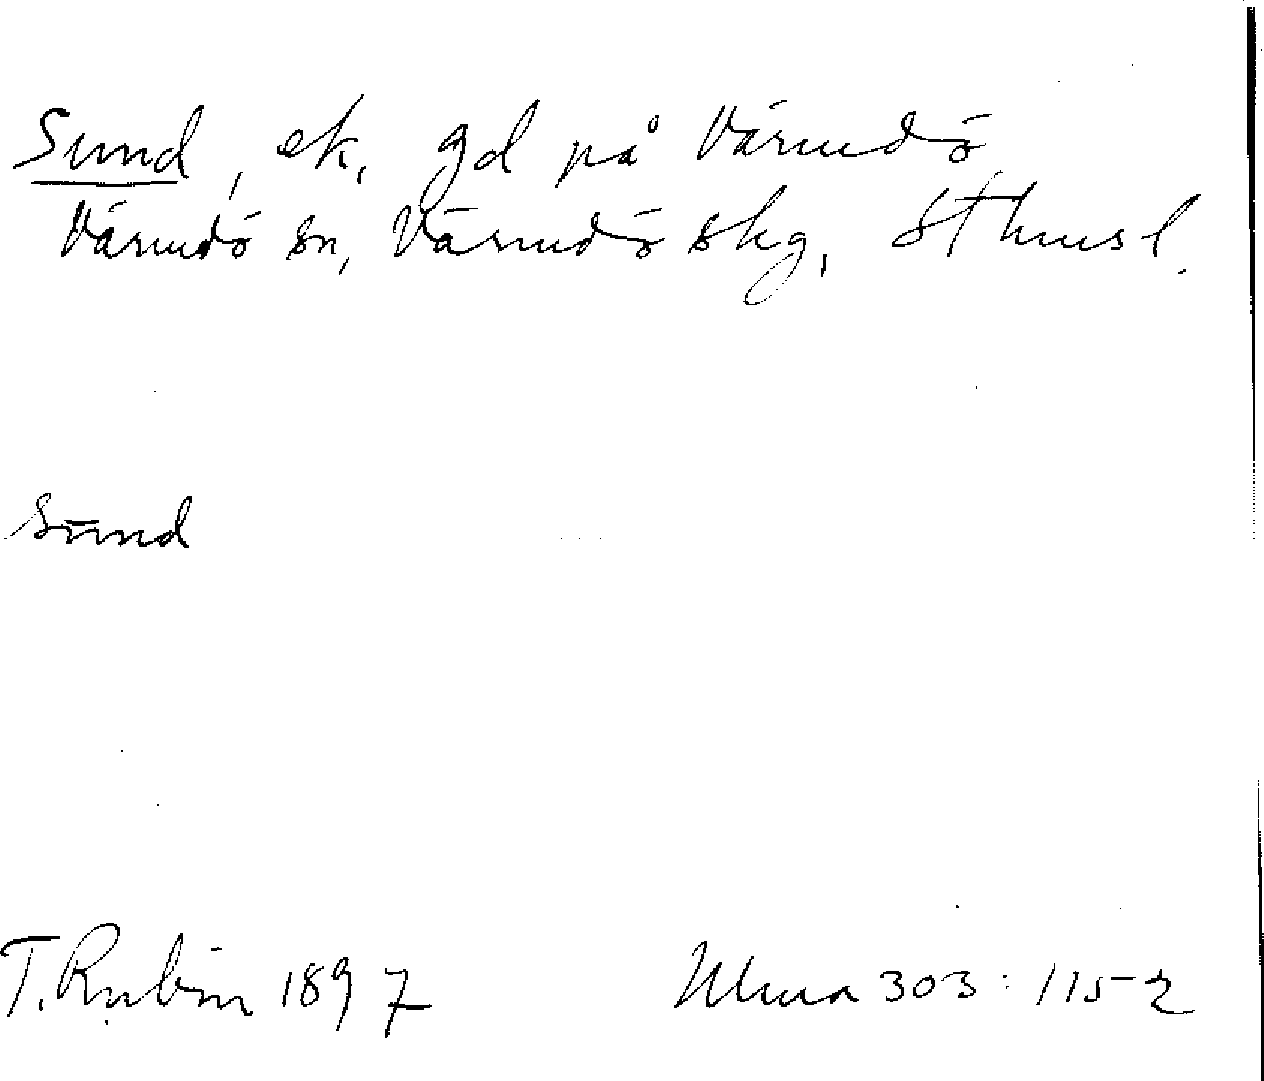 Sund, ek, gd på Värmdö
Värmdö sn, Värmdö skg, Sthmsl.
sund
T. Rubin 1897 Ulma 303:115 2